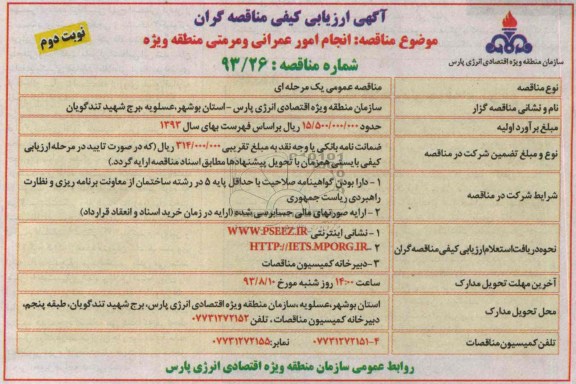 آگهی ارزیابی کیفی مناقصه گران
نوبت دوم
موضوع مناقصه: انجام امور عمرانی ومرمتی منطقه ویژه
شماره مناقصه : ۹۳/۲۶
سازمان منطقه ویژه اقتصادی انرژی پارس
نوع مناقصه
مناقصه عمومی یک مرحله ای
نام و نشانی مناقصه گزار
سازمان منطقه ویژه اقتصادی انرژی پارس -استان بوشهر،عسلویه ،برج شهید تندگویان
مبلغ برآورد اولیه
حدود ۱۵/۵۰۰/۰۰۰/۰۰۰ ریال براساس فهرست بهای سال ۱۳۹۳
نوع و مبلغ تضمین شرکت در مناقصه
ضمانت نامه بانکی یا وجه نقد به مبلغ تقریبی ۳۱۴/۰۰۰/۰۰۰ ریال (که در صورت تایید در مرحله ارزیابی
کیفی بایستی همزمان با تحویل پیشنهادها مطابق اسناد مناقصه ارایه گردد.)
شرایط شرکت در مناقصه
۱- دارا بودن گواهینامه صلاحیت با حداقل پایه ۵ در رشته ساختمان از معاونت برنامه ریزی و نظارت
راهبردی ریاست جمهوری
۲- ارایه صورتهای مالی حسابرسی شده (ارایه در زمان خرید اسناد و انعقاد قرارداد)
نحوه دریافت استعلام ارزیابی کیفی مناقصه گران
۱- نشانی اینترنتی WWW.PSEEZ.IR
۲- HTTP://IETS.MPORG.IR
۳-دبیرخانه کمیسیون مناقصات
آخرین مهلت تحویل مدارک
ساعت ۱۴:۰۰ روز شنبه مورخ ۹۳/۸/۱۰
محل تحویل مدارک
استان بوشهر،عسلویه ،سازمان منطقه ویژه اقتصادی انرژی پارس، برج شهید تندگویان، طبقه پنجم،
دبیرخانه کمیسیون مناقصات ، تلفن ۰۷۷۳۱۲۷۲۱۵۲
تلفن کمیسیون مناقصات
۰۷۷۳۱۲۷۲۱۵۱-۴ نمابر:۰۷۷۳۱۲۷۲۱۵۵
روابط عمومی سازمان منطقه ویژه اقتصادی انرژی پارس